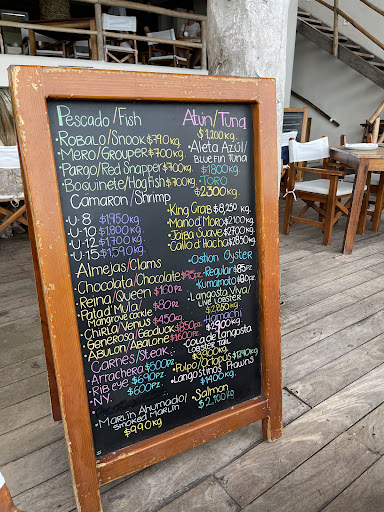 Pescado/Fish
•Robalo/Snook $790 kg.
•Mero/Grouper $700 kg.
•Pargo/Red Snapper $700 kg.
•Boquinete/Hog Fish $700 kg.
Camaron/Shrimp
•U-8 $1950 kg.
•U-10 $1,800 kg.
•U-12 $1,700 kg.
•U-15 $1,590 kg.
Almejas/Clams
•Chocolata/Chocolate $95 pz
•Reina/Queen $100 pz
•Pata d' Mula/ $80 pz
Mangrove cockle
•Chirla/Venus $450 kg.
•Generosa/Geoduck $850 pz.
•Abulon/Abalone $1600 pz.
Carnes/Steak
•Arrachera $500 pz
•Rib eye $690 pz
•NY. $600 pz.
•Marlin Ahumado/
smoked Marlin
$990 kg
Atún/Tuna
$1,200 kg.
•Aleta Azúl/
Bluefin Tuna
$1800 kg.
•Toro
$2300 kg.
•King Crab $3,250 kg.
•Mano d' Moro $2,150 kg.
•Jaiba Suave $2700 kg.
•Callo d' Hacha $2850 kg.
•Ostion Oyster
•Regular $85 pz
•Kumamoto $80 pz.
•Langosta Viva/
Live Lobster
$2850 kg
•Hamachi
$2900 kg.
•Cola de langosta
Lobster tail
•Pulpo/Octopus $1290 kg.
•Langostinos Prawns
$1400 kg.
•Salmon
$2,100 kg.